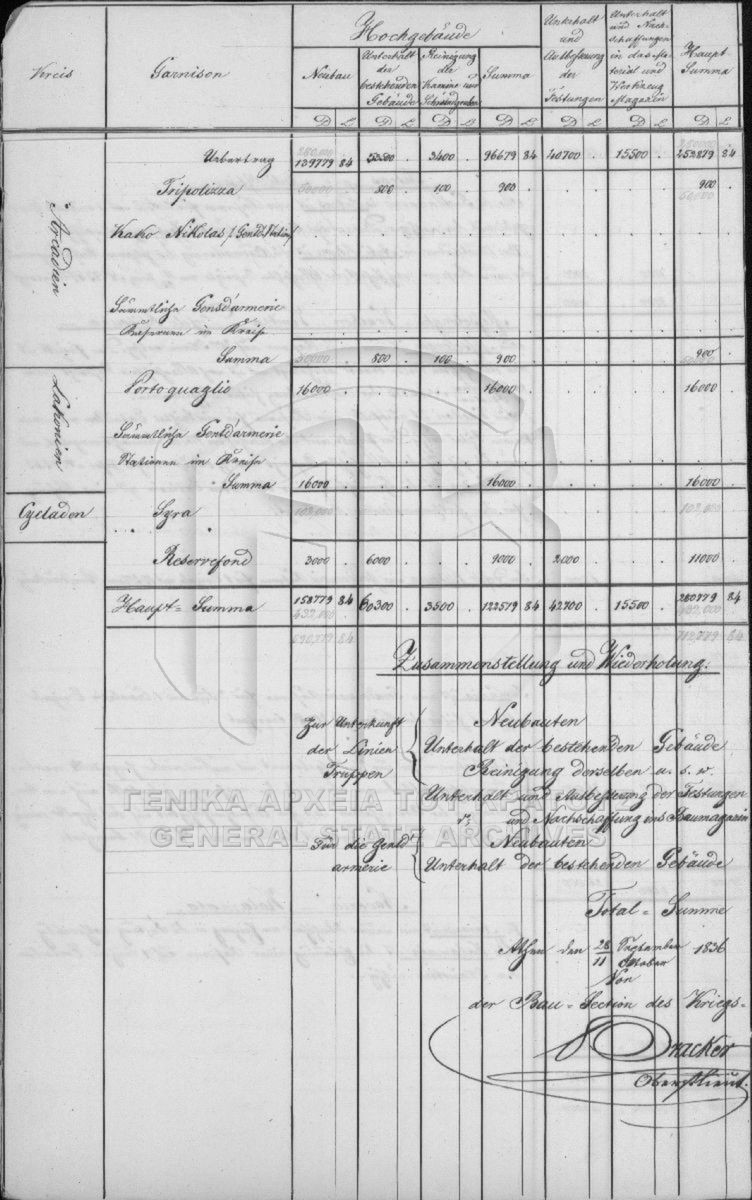 Kreis Garnison Hochgebäude Unterhalt und Ausbesserung der Festungen Unterhalt und Nachschaffungen in das Material und Werkzeug Magazin Haupt Summa
Neubau Unterhalt der bestehenden Gebäude Reinigung der Kamine und Summa
D L D L D L D L D L D L D L
280000
Uebertrag 139779 84 53500 3400 96679 84 40700 15500 253879 84
Arcadien
Tripolizza 800 100 900 900
Kako Nikolas
Sämmtliche Gensdarmerie
Kasernen im Kreise
Summa 800 100 900 900
Lakonien
Portoquaglio 16000 16000 16000
Sämmtliche Gensdarmerie
Stationen im Kreise
Summa 16000 16000 16000
Cycladen Syra 102,000 102,000
Reservefond 3000 6000 9000 2000 11000
Haupt=Summa 158779 84 60300 3500 122519 84 42700 15500 280779 84
432,000 432,000
712,779 84
Zusammenstellung und Wiederholung.
Zur Unterkunft der Linien Truppen
Neubauten
Unterhalt der bestehenden Gebäude
Reinigung derselben u. s. w.
Unterhalt und Ausbesserung der Festungen
und Nachschaffung ins Baumagazin
Für die Gensd'armerie
Neubauten
Unterhalt der bestehenden Gebäude
Total=Summe
Athen den 28/11 September October 1836
Von
der Bau=Section des Kriegs=
Oberstlieut.
ΓΕΝΙΚΑ ΑΡΧΕΙΑ ΤΟΥ ΚΡΑΤΟΥΣ
GENERAL STATE ARCHIVES